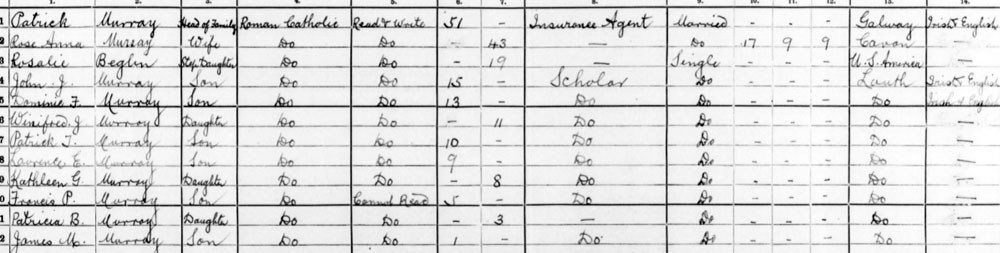 1. 2. 3. 4. 5. 6. 7. 8. 9. 10. 11. 12. 13. 14.
1 Patrick Murray Head of Family Roman Catholic Read & Write 51 - Insurance Agent Married - - - Galway Irish & English
2 Rose Anna Murray Wife Do Do - 43 — Do 17 9 9 Cavan —
3 Rosalie Beglin Step Daughter Do Do - 19 — Single - - - U.S. America —
4 John J. Murray Son Do Do 15 - Scholar Do - - - Louth Irish & English
5 Dominic F. Murray Son Do Do 13 - Do Do - - - Do Irish & English
6 Winifred J Murray Daughter Do Do - 11 Do Do - - - Do —
7 Patrick T. Murray Son Do Do 10 - Do Do - - - Do —
8 Lawrence E. Murray Son Do Do 9 - Do Do - - - Do —
9 Kathleen G Murray Daughter Do Do - 8 Do Do - - - Do —
0 Francis P. Murray Son Do Cannot Read 5 - Do Do - - - Do —
1 Patricia B. Murray Daughter Do Do - 3 — Do - - - Do —
2 James M. Murray Son Do Do 1 - Do. Do - - - Do —